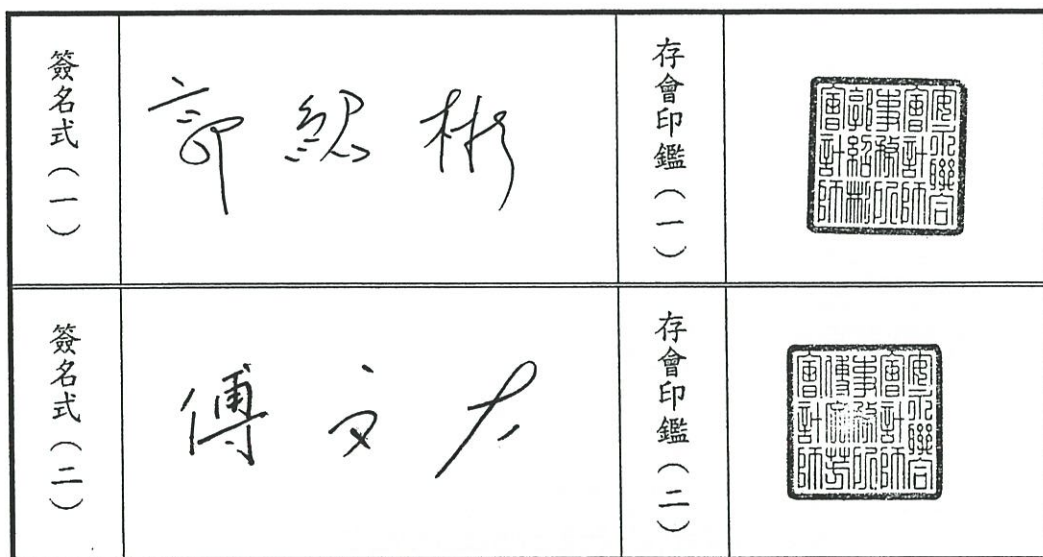 簽名式（一）
郭紹彬
存會印鑑（一）
安永聯合
會計師
事務所
郭紹彬
會計師
簽名式（二）
傅文
存會印鑑（二）
安永聯合
會計師
事務所
會計師